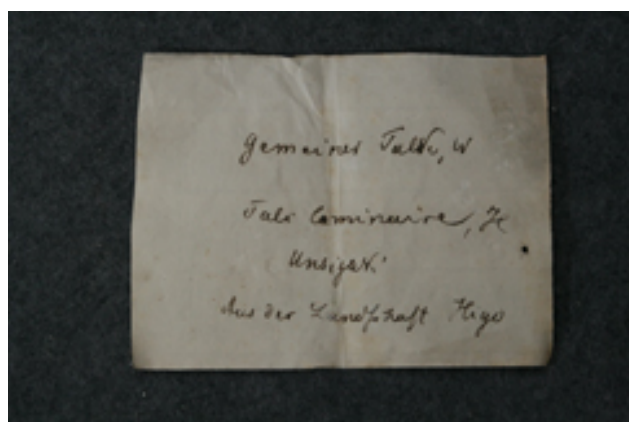 Gemeiner Talk, W
Talc laminaire, H
Unsigh.
Aus der Landschaft Hego